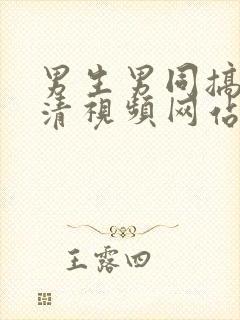 男生男同搞
清视频网佔
王露四